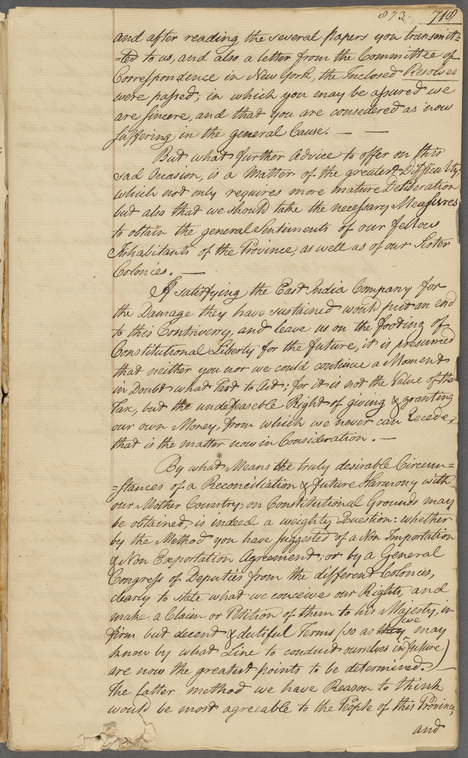 873. 718
and after reading the several Papers you transmit-
-ted to us, and also a letter from the Committee of
Correspondence in New York, the Inclosed Resolves
were passed, in which you may be assured we
are sincere, and that you are considered as now
suffering in the general Cause. — —
But what further Advice to offer on this
sad Occasion, is a Matter of the greatest Difficulty,
which not only requires more mature Deliberation
but also that we should take the necessary Measures
to obtain the general Sentiments of our fellow
Inhabitants of the Province, as well as of our Sister
Colonies. —
If satisfying the East India Company for
the Damage they have sustained would put an end
to this Controversy, and leave us on the footing of
Constitutional Liberty for the future, it is presumed
that neither you nor we could continue a Moment
in Doubt what Part to Act; for it is not the Value of the
Tax, but the undefeasible Right of giving & granting
our own Money, from which we never can recede,
that is the matter now in Consideration. —
By what Means the truly desirable Circum-
-stances of a Reconciliation & future Harmony with
our Mother Country on Constitutional Grounds may
be obtained, is indeed a weighty Question: whether
by the Method you have suggested of a Non Importation
& Non Exportation Agreement, or by a General
Congress of Deputies from the different Colonies,
clearly to state what we conceive our Rights, and
make a Claim or Petition of them to his Majesty, in
firm but decent & dutiful Terms, (so as they we may
know by what Line to conduct ourselves in future)
are now the greatest points to be determined. —
The latter method we have Reason to think
would be most agreeable to the People of this Province,
and